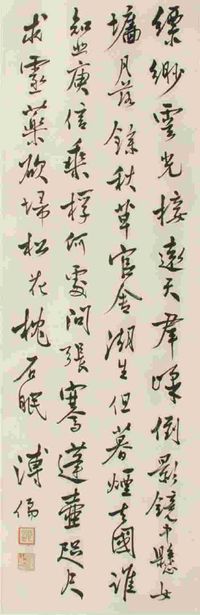 縹緲雲光接遠天群峰倒影鏡中懸女
墻月落餘秋草官舍潮生但暮煙去國誰
知庾信乘槎何處問張騫蓬壺咫尺
求靈藥欲埽松花枕石眠 溥儒